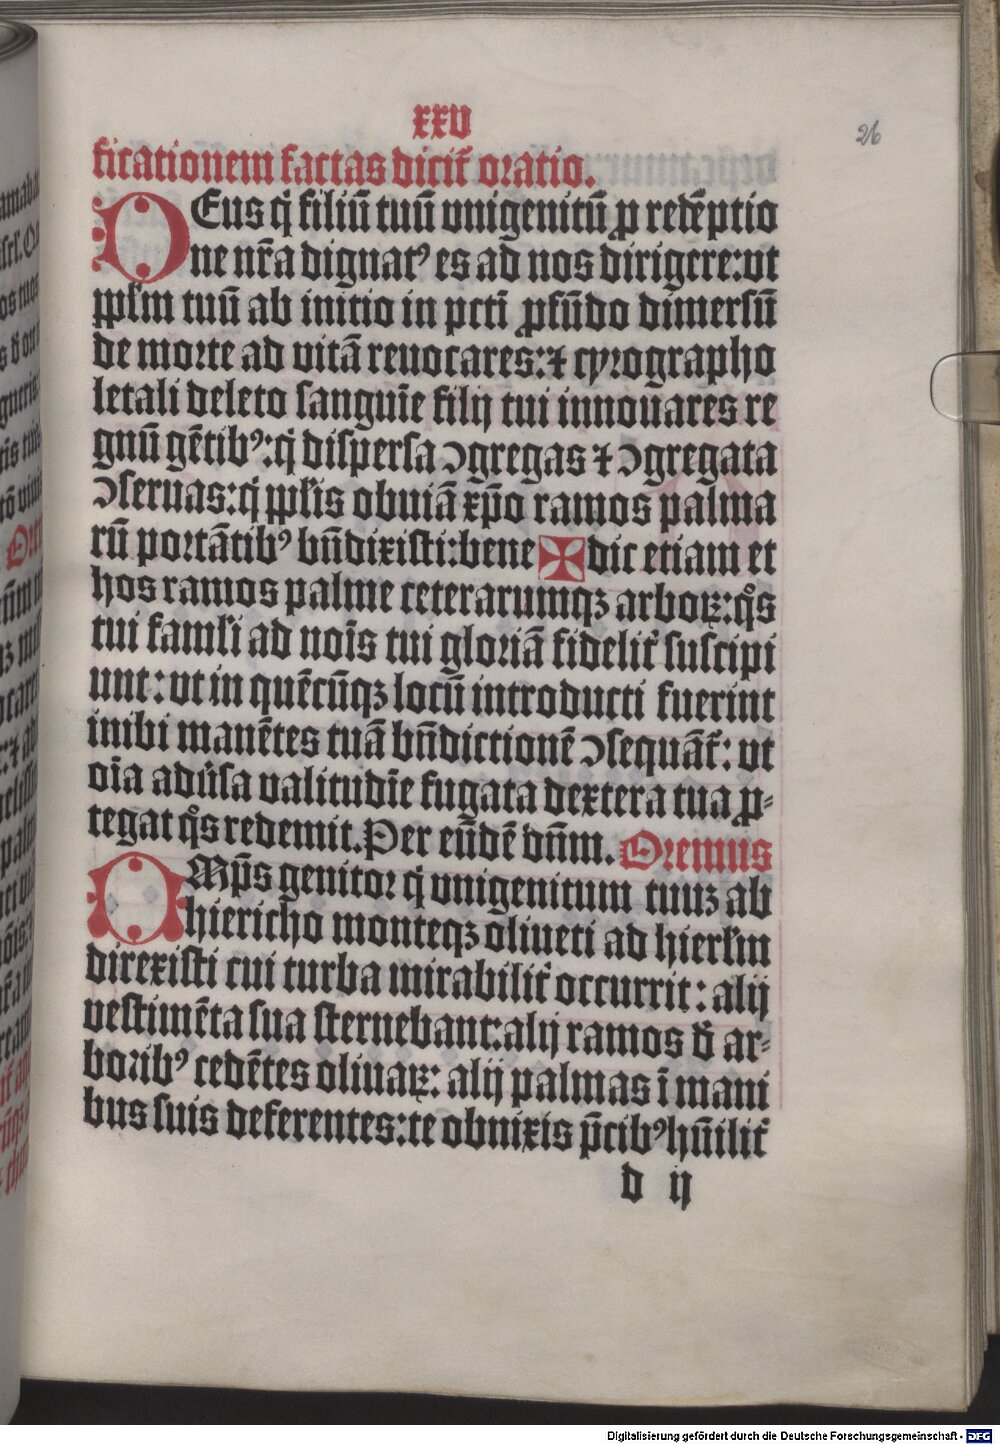 xxv
26
ficationem factas dicit᷑ oratio.
DEus q̇ filiū tuū vnigenitū ꝓ redēptio
ne nr̄a dignatꝰ es ad nos dirigere: vt
ppl̓m tuū ab initio in pctī ꝓfūdo dimersū
de morte ad vitā reuocares: ⁊ cyrographo
letali deleto sanguīe filij tui innouares re
gnū gētibꝰ: q̇ dispersa ↄgregas ⁊ ↄgregata
ↄseruas: q̇ ppl̓is obuiā xp̄o ramos palma
rū portātibꝰ bn̄dixisti: bene ✠ dic etiam et
hos ramos palme ceterarumqꝫ arboꝝ: qͦs
tui faml̓i ad nōis tui gloriā fidelit᷑ suscipi
unt: vt in quēcūqꝫ locū introducti fuerint
inibi manētes tuā bn̄dictionē ↄsequāt᷑: vt
oīa adu̓sa valitudīe fugata dextera tua ꝓ-
tegat qͦs redemit. Per eūdē dn̄m. Oremus
OMp̄s genitor q̇ vnigenitum tuuꝫ ab
hiericho monteqꝫ oliueti ad hierl̓m
direxisti cui turba mirabilit᷑ occurrit: alij
vestimēta sua sternebant: alij ramos d̓ ar-
boribꝰ cedētes oliuaꝝ: alij palmas ī mani
bus suis deferentes: te obnixis p̄cibꝰ hūilit᷑
d ij
Digitalisierung gefördert durch die Deutsche Forschungsgemeinschaft - DFG